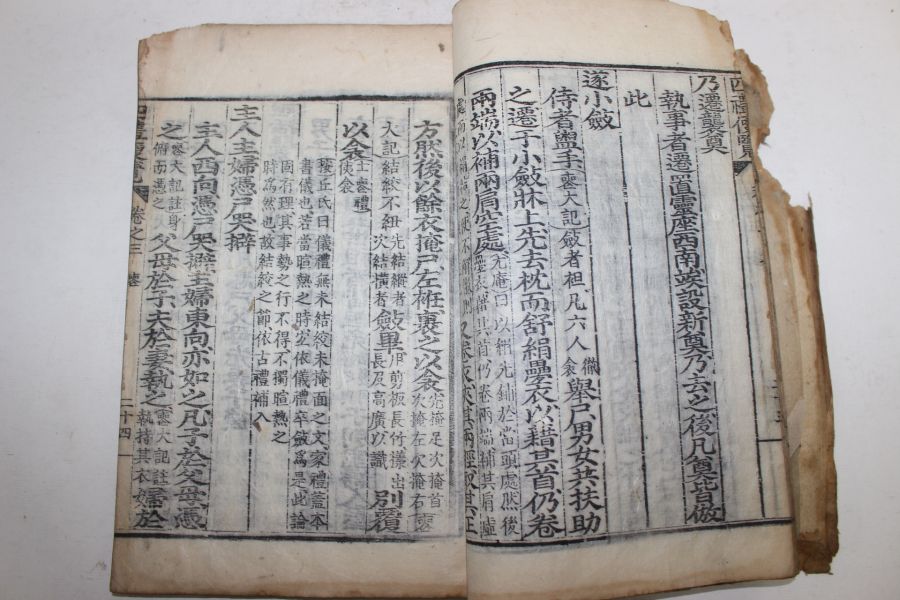 四禮便覽
乃遷襲奠
執事者遷置靈座西南俟設新奠乃去之後凡奠皆倣
此
遂小斂
侍者盥手喪大記斂者袒凡六人徹衾擧尸男女共扶助
之遷于小斂牀上先去枕而舒絹疊衣以藉其首仍卷
兩端以補兩肩空處尤庵曰以絹先鋪於當頭處然後
疊衣藉其首仍卷兩端補其肩虛
又卷衣夾其兩脛取其正
方然後以餘衣掩尸左衽裹之以衾先掩足次掩首
次掩左次掩右喪
大記結絞不紐先結縱者
次結橫者斂畢用剪板長竹㨾出
長及高廣以識別覆
以衾士喪禮
夷衾
按丘氏曰儀禮無未結絞未掩面之文家禮蓋本
書儀也若當暄熱之時宜依儀禮卒斂爲是此論
固有理其事勢之行不得不獨暄熱之
時爲然也故結絞之節依古禮補入
主人主婦憑尸哭擗
主人西向憑尸哭擗主婦東向亦如之凡子於父母憑
之喪大記註身
俯而憑之父母於子夫於妻執之喪大記註
執持其衣婦於
四禮便覽 卷之三 喪 二十四